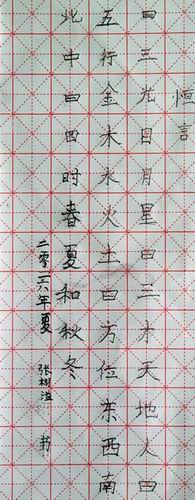 恒言
曰三光日月星曰三才天地人曰
五行金木水火土曰方位东西南
北中曰四时春夏和秋冬
二零一六年夏 张 书